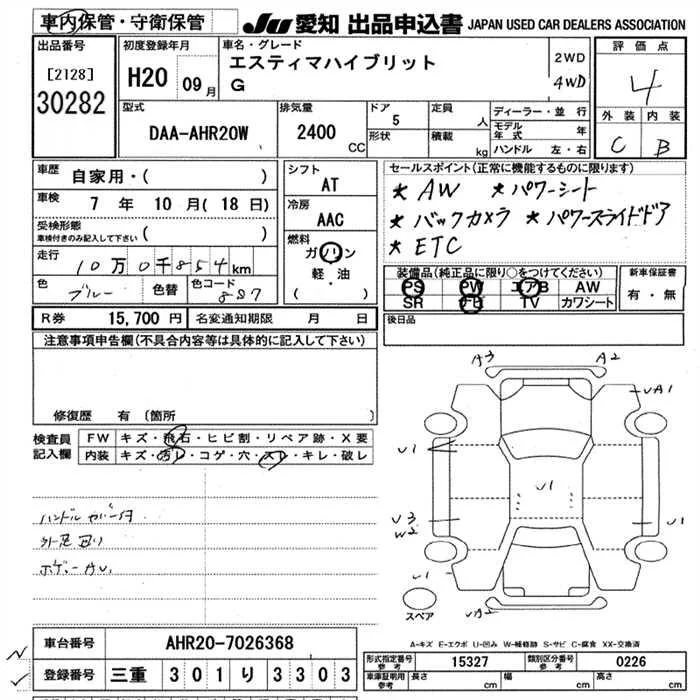 車内保管・守衛保管
JU 愛知 出品申込書 JAPAN USED CAR DEALERS ASSOCIATION
出品番号
[2128]
30282
初度登録年月
H20 09月
車名・グレード
エスティマハイブリット
G
2WD
4WD
評価点
4
外装 内装
C B
型式
DAA-AHR20W
排気量
2400 CC
ドア
5
形状
定員 人
積載 kg
ディーラー・並行
モデル年式 年
ハンドル 左・右
車歴
自家用・( )
車検
7 年 10 月(18日)
受検形態
車検付きのみ記入して下さい ( )
走行
10万0千854km
色
ブルー
色替
色コード
8S7
シフト
AT
冷房
AAC
燃料
ガソリン
軽・油
( )
セールスポイント(正常に機能するものに限ります)
★ AW ★ パワーシート
★ バックカメラ ★ パワースライドドア
★ ETC
装備品(純正品に限り○をつけてください)
PS PW エアB AW
SR TV カワシート
新車保証書
有・無
R券 15,700 円 名変通知期限 月 日
後日品
注意事項申告欄(不具合内容等は具体的に記入して下さい)
修復歴 有 〔箇所 〕
検査員記入欄
FW キズ・飛石・ヒビ割・リペア跡・X要
内装 キズ・汚レ・コゲ・穴・スレ・キレ・破レ
ハンドルカバー付
A3 A2
UA1
U1
U1
U3
W2
U1
U1
UA2
スペア
A-キズ E-エクボ U-凹み W-補修跡 S-サビ C-腐食 XX-交換済
車台番号 AHR20-7026368
登録番号 三重 301 り 3303
形式指定番号 参考 15327 類別区分番号 参考 0226
車庫証明用 参考 長さ cm 幅 cm 高さ cm